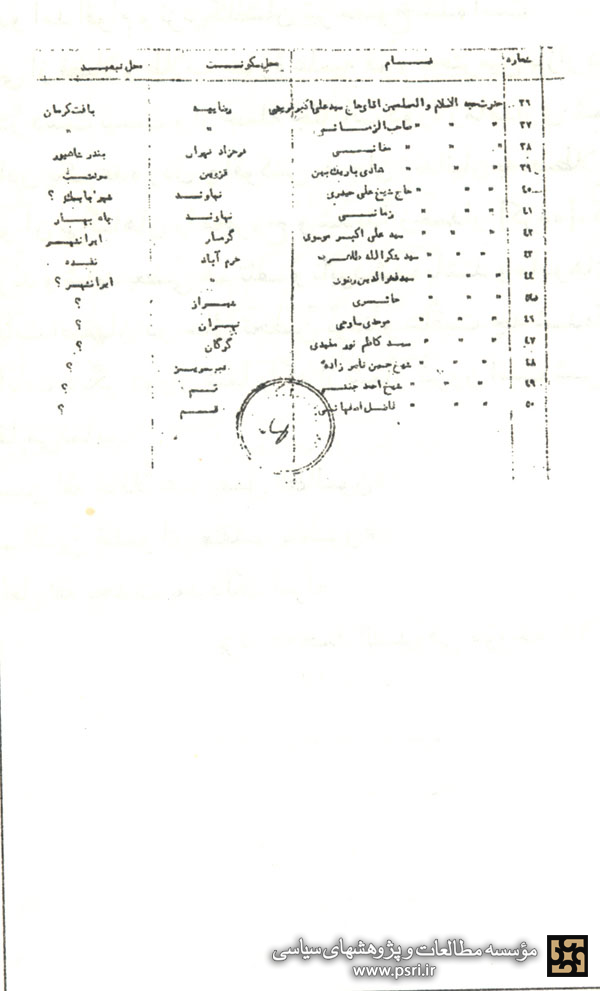 شماره نام محل سکونت محل تبعید
۳۶ حضرت حجة الاسلام والمسلمین آقای حاج سید علی اکبر بافت کرمان
۳۷ " " " صاحب الزمانی " "
۳۸ " " " بندر شاهپور
۳۹ " " " هادی باریک بین قزوین
۴۰ " " " حاج شیخ علی حیدری نهاوند شهر بابک ؟
۴۱ " " " زمانی نهاوند چاه بهار
۴۲ " " " سید علی اکبر موسوی گرمسار ایرانشهر
۴۳ " " " سید خرم آباد نقده
۴۴ " " " سید فخرالدین " ایرانشهر ؟
۴۵ " " " حائری شیراز ؟
۴۶ " " " موحدی ساوجی تهران ؟
۴۷ " " " سید کاظم نور مفیدی گرگان ؟
۴۸ " " " شیخ حسین ؟
۴۹ " " " شیخ احمد جنتی قم ؟
۵۰ " " " قم ؟
مؤسسه مطالعات و پژوهشهای سیاسی
www.psri.ir